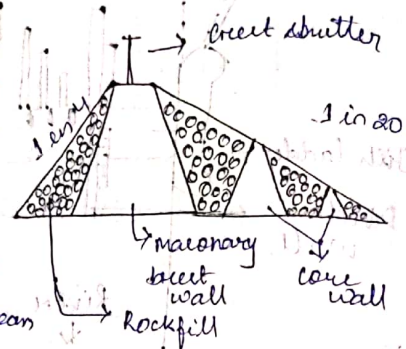 Crest shutter
1 in 4
1 in 20
masonary
brest
wall
core
wall
Rockfill